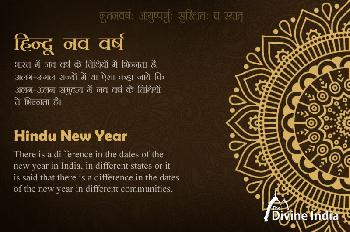 हिन्दू नव वर्ष
भारत में नव वर्ष के तिथियों में भिन्नता है,
अलग-अलग राज्यों में या ऐसा कहा जाये कि
अलग-अलग समुदाय में नव वर्ष के तिथियों
में भिन्नता है।
Hindu New Year
There is a difference in the dates of the
new year in India, in different states or it
is said that there is a difference in the dates
of the new year in different communities.
The Divine India